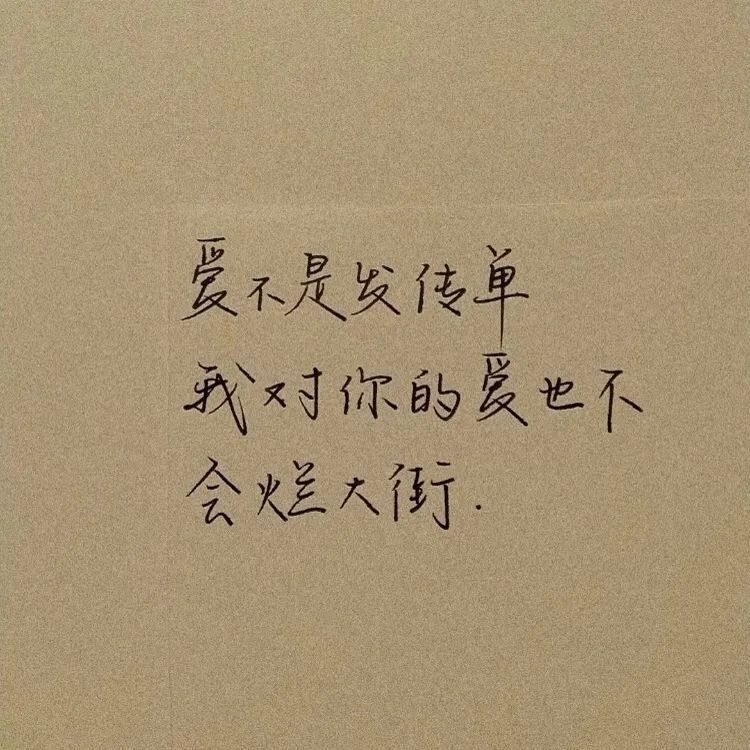 爱不是发传单
我对你的爱也不
会烂大街.